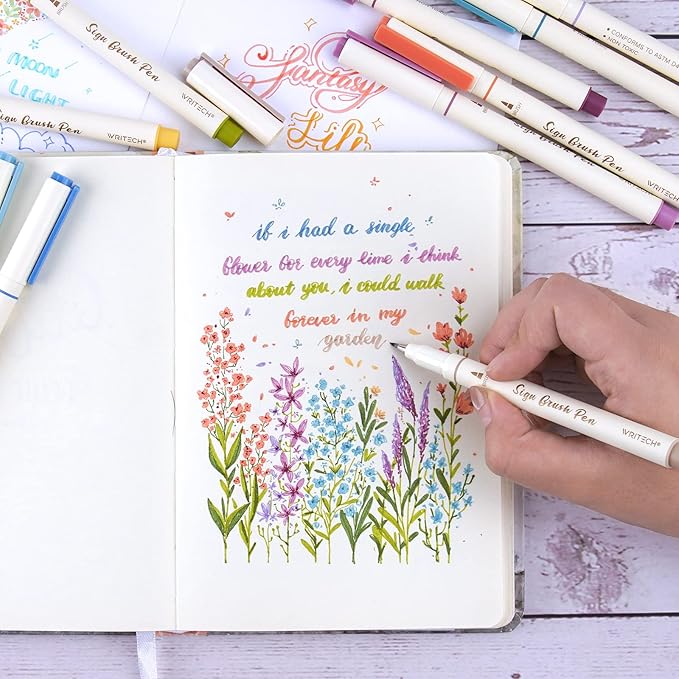 Sign Brush Pen
MOON
LIGHT
Sign Brush Pen WRITECH®
Fantasy
CONFORMS TO ASTM D4
NON TOXIC
WRITECH®
Sign Brush Pen
WRITECH®
if i had a single
flower for every time i think
about you, i could walk
forever in my
garden
Sign Brush Pen
WRITECH®